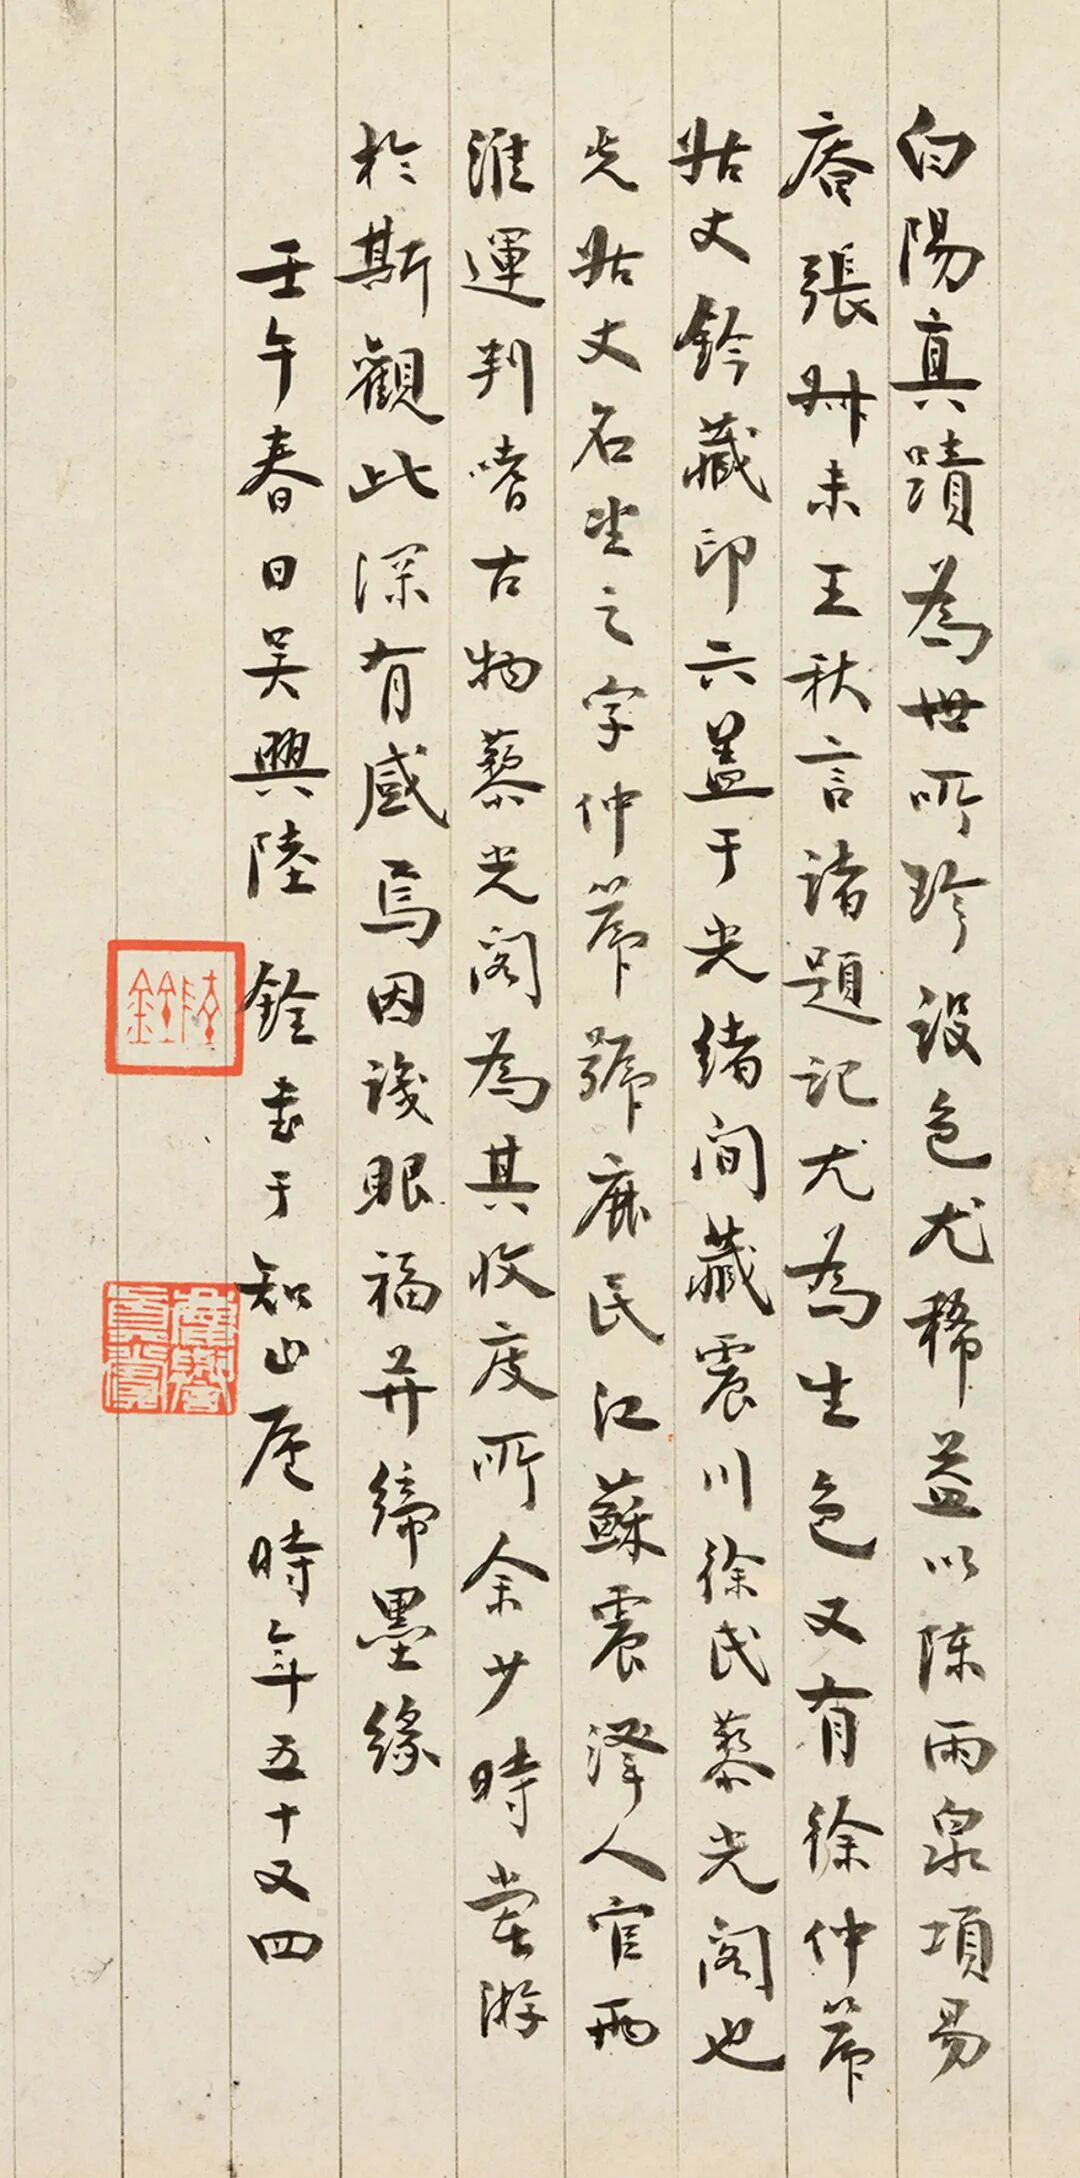 白陽真蹟為世所珍設色尤稀益以陳雨泉項易
庵張叔未王秋言諸題記尤為生色又有徐仲芾
姑丈鈐藏印六蓋于光緒間藏震川徐氏藜光閣也
先姑丈名坐之字仲芾號鹿民江蘇震澤人官兩
淮運判嗜古物藜光閣為其收庋所余少時嘗游
於斯觀此深有感焉因識眼福并締墨緣
壬午春日吳興陸銓書于知止廬時年五十又四
陸銓
真賞